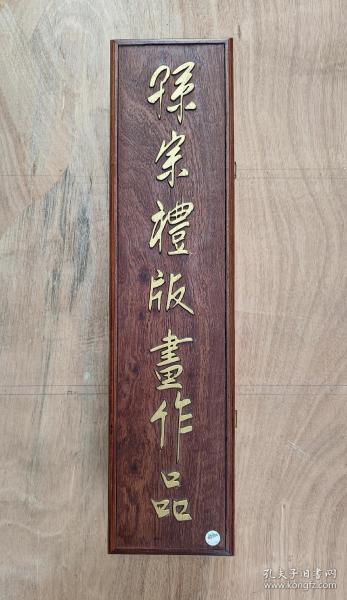 孫宗禮版畫作品
孔夫子旧书网
www.kongfz.com